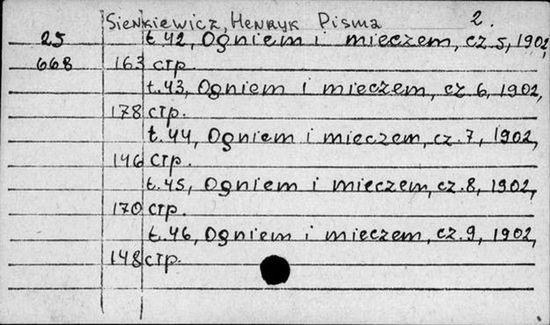 Sienkiewicz, Henryk Pisma 2.
25 t.42, Ogniem i mieczem, cz.5, 1902,
668 163 стр.
t.43, Ogniem i mieczem, cz 6, 1902,
178 стр.
t.44, Ogniem i mieczem, cz.7, 1902,
146 стр.
t.45, Ogniem i mieczem, cz.8, 1902,
170 стр.
t.46, Ogniem i mieczem, cz.9, 1902,
148 стр.